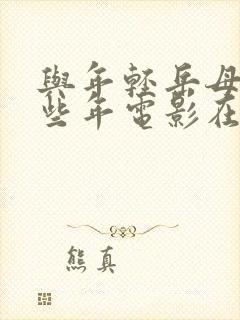 與年輕岳母
些年電影在
熊真